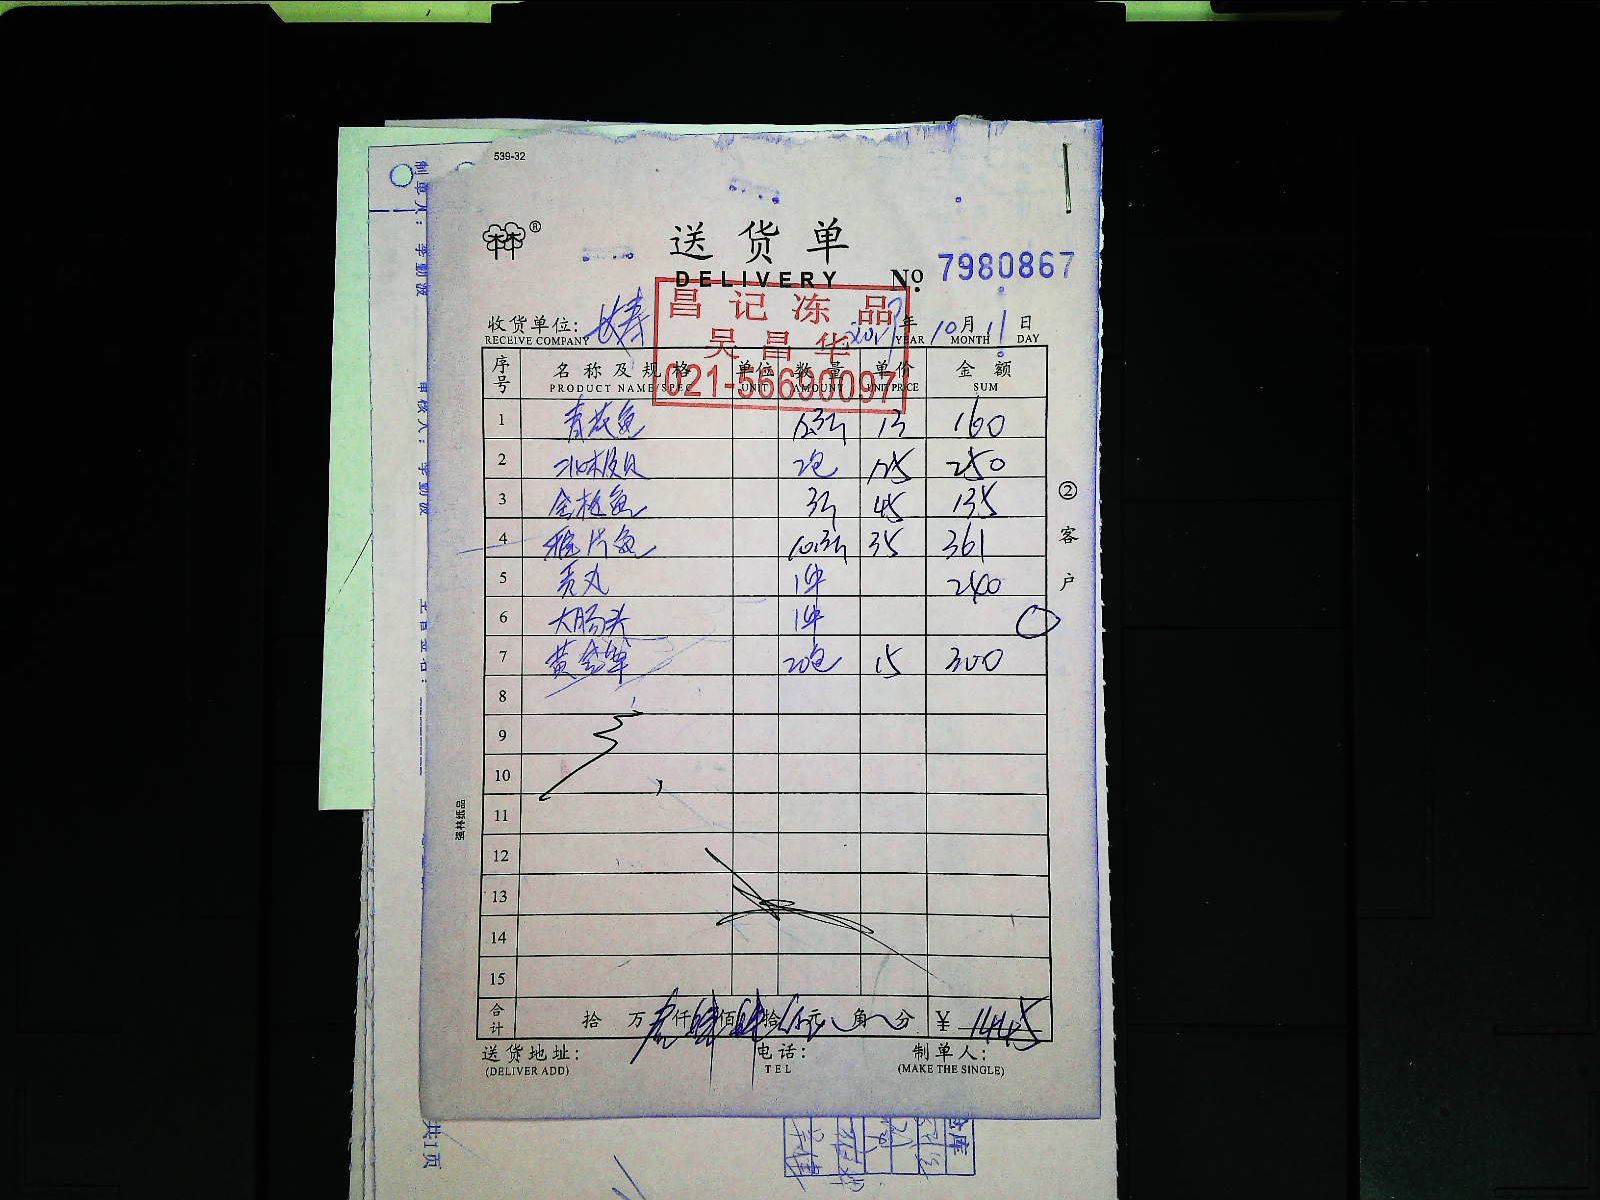 539-32
林®
送货单
DELIVERY № 7980867
昌记冻品
吴昌华
021-56690097
收货单位: 长寿 2017年 10月 11日
RECEIVE COMPANY YEAR MONTH DAY
序号 名称及规格 单位 数量 单价 金额
PRODUCT NAME/SPEC UNIT AMOUNT UNIT PRICE SUM
1 青花鱼 12.3斤 13 160
2 北极贝 2包 125 250
3 金枪鱼 3斤 45 135
4 鸦片鱼 10.3斤 35 361
5 贡丸 1件 240
6 大肠头 1件
7 黄金笋 20包 15 300
8
9
10
11
12
13
14
15
合计 拾 万壹仟肆佰肆拾伍元 角 分 ¥ 1445
送货地址: 电话: 制单人:
(DELIVER ADD) TEL (MAKE THE SINGLE)
②客户
强林纸品
制单人: 李勤波
审核人: 李勤波
主管签名:
共1页
仓库